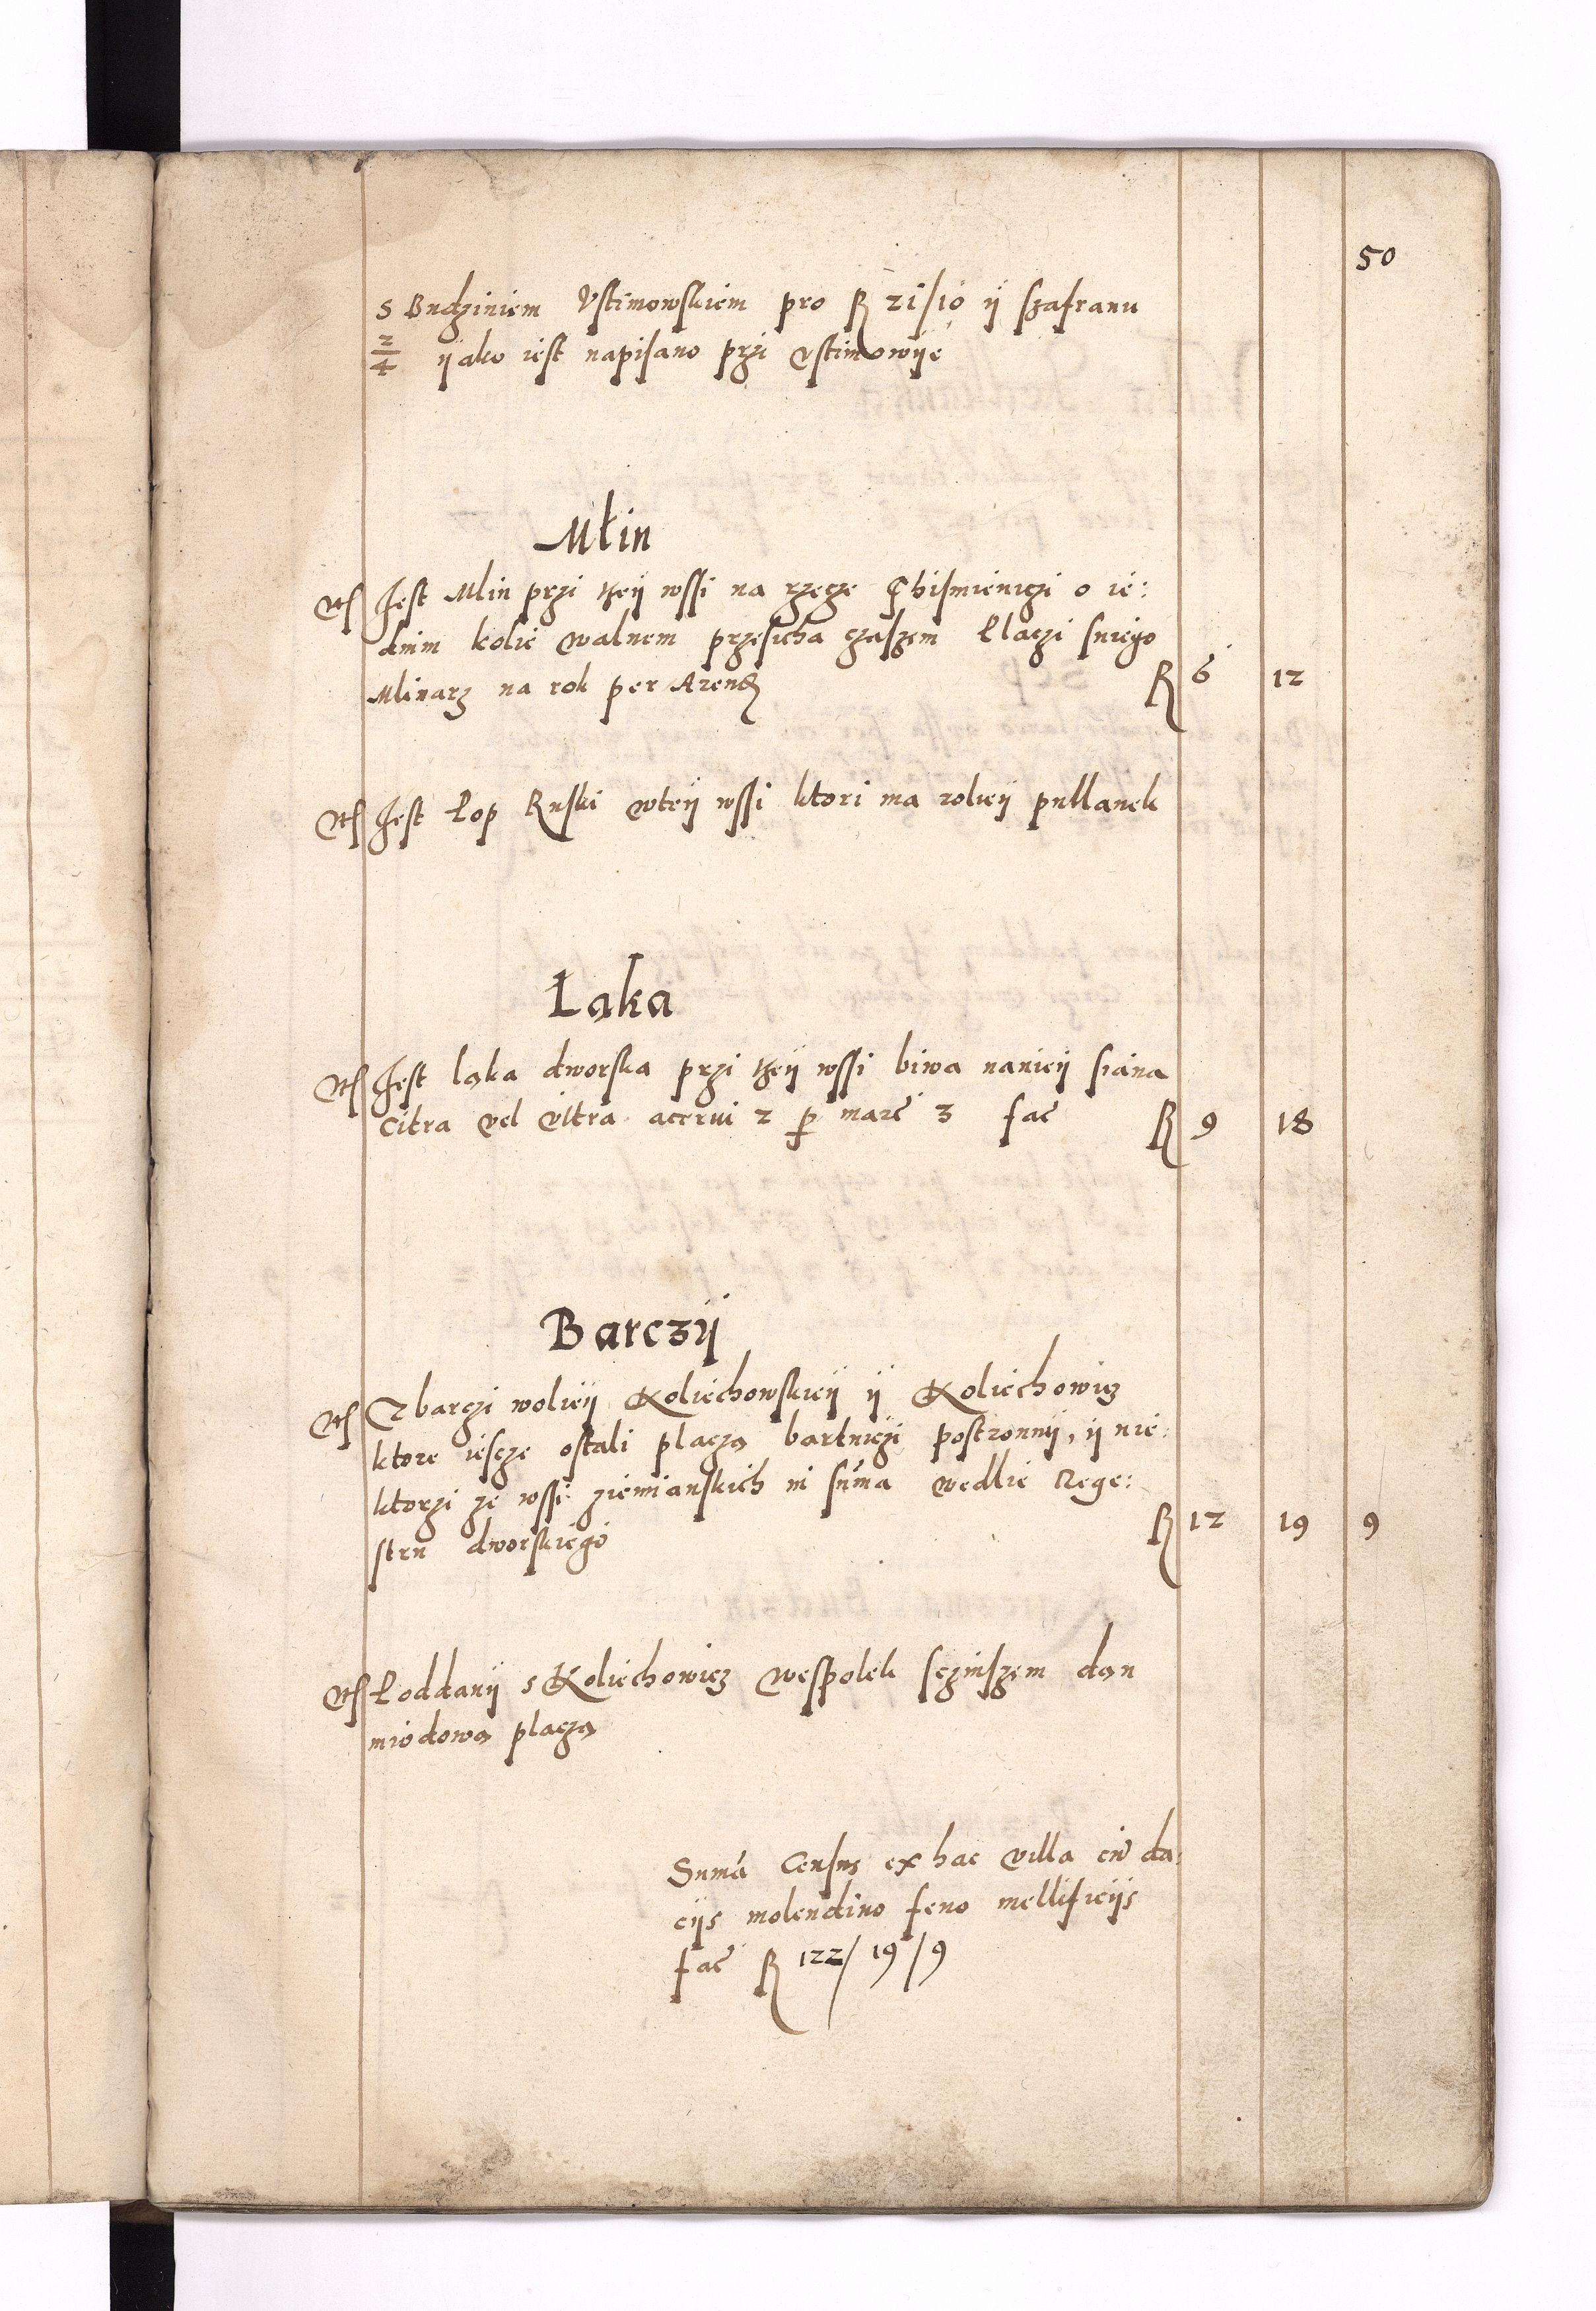 50
s Budziniem Vstimowskiem pro fl 21/10 ÿ szafranu
2/4 ÿako iest napisano przi Vstimowÿe
Młin
Jest Mlin przi teÿ wssi na rzecze Phismieniczi o ie:
dnim kolie walnem przesicha czaszem Placzi sniego
Mlinarz na rok per Arend fl 6 12
Jest Pop Ruski wteÿ wssi ktori ma roliei pullanek
Łąka
Jest ląka dworska przi teÿ wssi biwa nanieÿ siana
citra vel vltra acervi 2 p marc 3 fac fl 9 18
Barczÿ
Zbarczi wolieÿ Koliechowskieÿ ÿ Koliechowicz
ktore iescze ostali placzą bartniczi postronnÿ, ÿ nie:
ktorzi ze wssi ziemianskich in suma wedlie Rege:
stru dworskiego fl 12 19 9
Poddanÿ s Koliechowicz wespolek sczinszem dan
miodową placzą
Suma Census ex hac villa cu da:
ciis molendino feno mellificÿs
fac fl 122/19/9